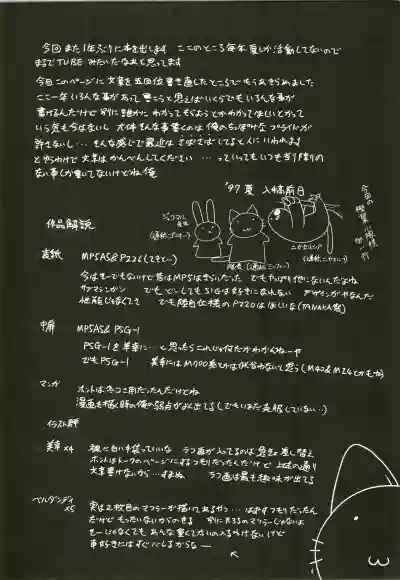 今回また1年ぶりに本を出します ここのところ毎年夏しか活動してないので
まるでTUBEみたいだなあと思ってます
今回このページに文章を五回位書き直したところでもうあきらめました
ここ一年いろんな事があって 書こうと思えばいくらでもいろんな事が
書けるんだけど 別に誰かに わかってもらおうとかわかってほしいとかって
いう気も今はないし 大体そんな事書くのは俺のちっぽけなプライドが
許さないし… そんな感じで最近は さばさばしてると人にいわれます
とゆうわけで文章はかんべんしてください …っていってもいつも当り障りの
ない事しか書いてないけどね 俺
'97 夏 入稿前日
作品解説
表紙 MP5A5&P226(してきと…)
今はそーでもないけど昔はMP5はきらいだった でもやっぱり他にないんだよね
サブマシンガン でも、どーしてもSIGは好きになれない デザインがやなんだ
性能じゃなくて でも陸自仕様のP220はほしいな(TANAKA製)
中扉 MP5A5&PSG-1
PSG-1を美幸に…と思ったらこれじゃ何だかわかんねーや
でもPSG-1 美幸にはM700系とかは似合わないと思う(M40&M24とかもね)
マンガ ホントはネコミ用だったんだけどね
漫画を描く時の俺の弱点がよく出てる(でもいまだ克服していない…)
イラスト群
美幸×4 裸に白い手袋っていいな ラフ画が入ってるのは急きょ差し替え
ホントはトークのページにするつもりだったんだけど 上述の通り
文章書けないから…すまぬ ラフ画は最も趣味が出てる
ベルダンディ×5 実は2枚目のマフラーが描いてあるやつ…はおすつもりだったん
だけど もったいないからのせる 別にR33のマフラーじゃないよ
そーじゃなくても あんな重くてかいの入る訳けないけど
車好きにはすぐバレるからなー